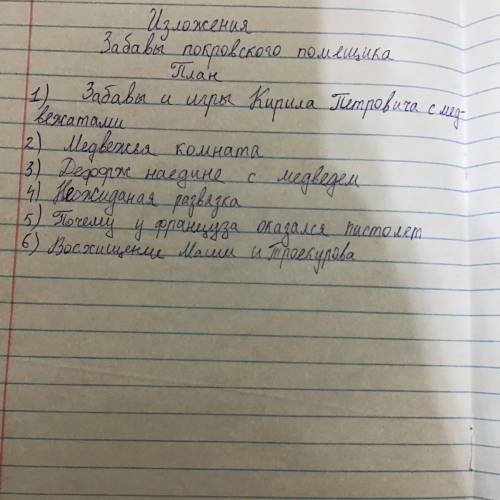 Изложения
Забавы покровского помещика
План
1) Забавы и игры Кирила Петровича с мед-
вежатами
2) Медвежья комната
3) Дефорж наедине с медведем
4) Неожиданая развязка
5) Почему у француза оказался пистолет
6) Восхищение Маши и Троекурова